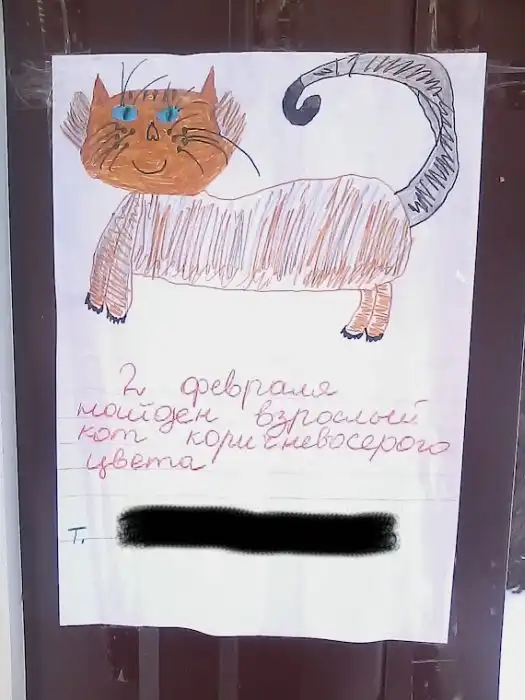 2 февраля
найден взрослый
кот коричневосерого
цвета
т.